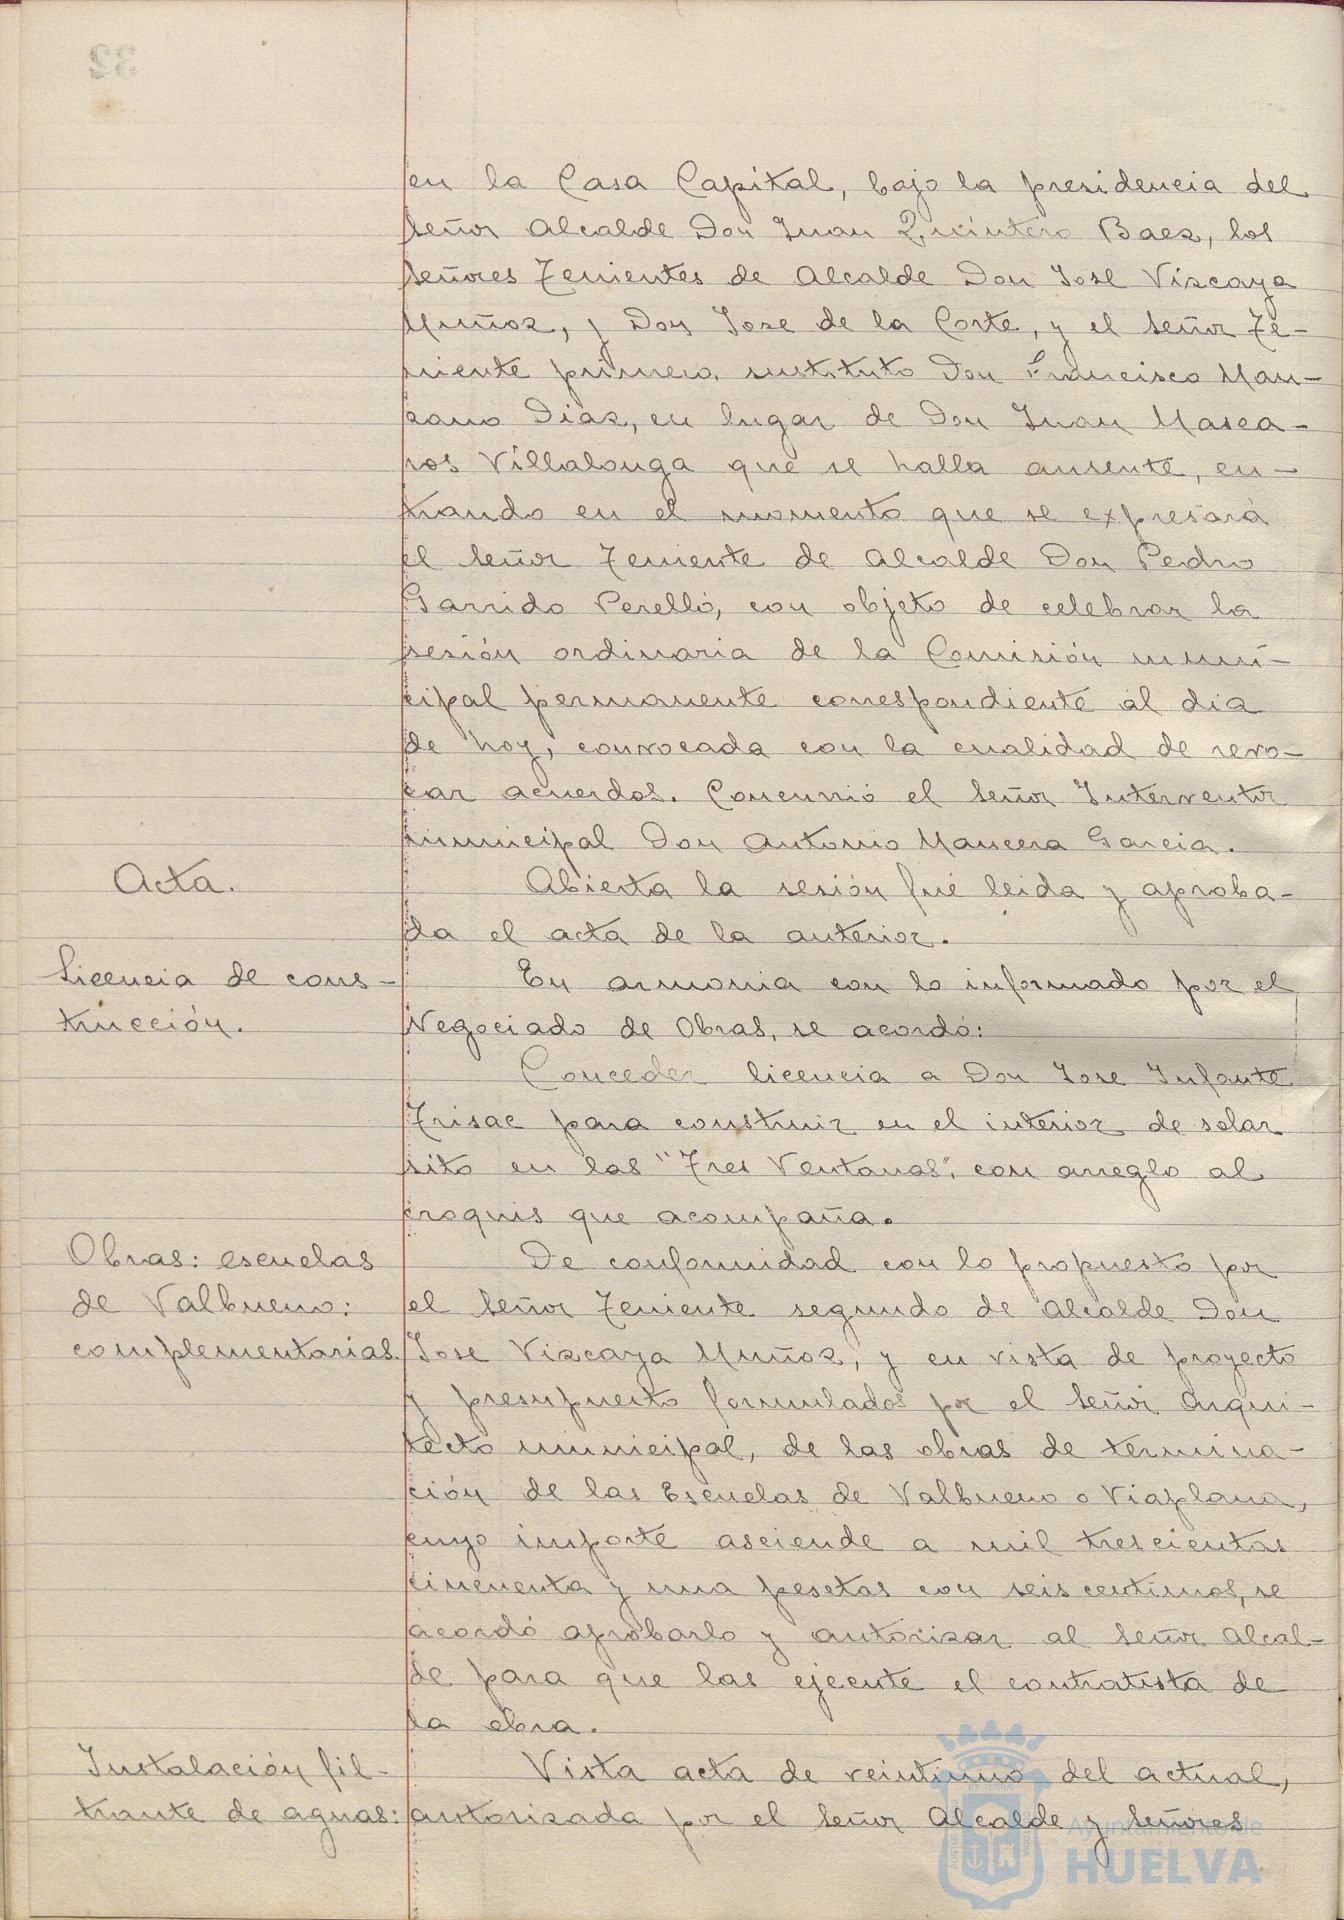 32
en la Casa Capital, bajo la presidencia del
señor Alcalde Don Juan Quintero Baez, los
señores Tenientes de Alcalde Don José Vizcaya
Muñoz, y Don Jose de la Corte, y el señor Te-
niente primero, sustituto Don Francisco Man-
zano Diaz, en lugar de Don Juan Masca-
ros Villalonga que se halla ausente, en-
trando en el momento que se expresará
el señor Teniente de Alcalde Don Pedro
Garrido Perelló, con objeto de celebrar la
sesión ordinaria de la Comisión muni-
cipal permanente correspondiente al dia
de hoy, convocada con la cualidad de revo-
car acuerdos. Concurrió el señor Interventor
municipal Don Antonio Mancera Garcia.
Acta.
Abierta la sesión fué leida y aproba-
da el acta de la anterior.
Licencia de cons-
trucción.
En armonia con lo informado por el
Negociado de Obras, se acordó:
Conceder licencia a Don Jose Infante
Trisac para construir en el interior de solar
sito en las "Tres Ventanas", con arreglo al
croquis que acompaña.
Obras: escuelas
de Valbueno:
complementarias.
De conformidad con lo propuesto por
el señor Teniente segundo de Alcalde Don
Jose Vizcaya Muñoz, y en vista de proyecto
y presupuesto formulados por el señor Arqui-
tecto municipal, de las obras de termina-
ción de las Escuelas de Valbueno o Viaplana,
cuyo importe asciende a mil trescientas
cincuenta y una pesetas con seis centimos, se
acordó aprobarlo y autorizar al señor Alcal-
de para que las ejecute el contratista de
la obra.
Instalación fil-
trante de aguas:
Vista acta de veintiuno del actual,
autorizada por el señor Alcalde y señores
Ayuntamiento de
HUELVA